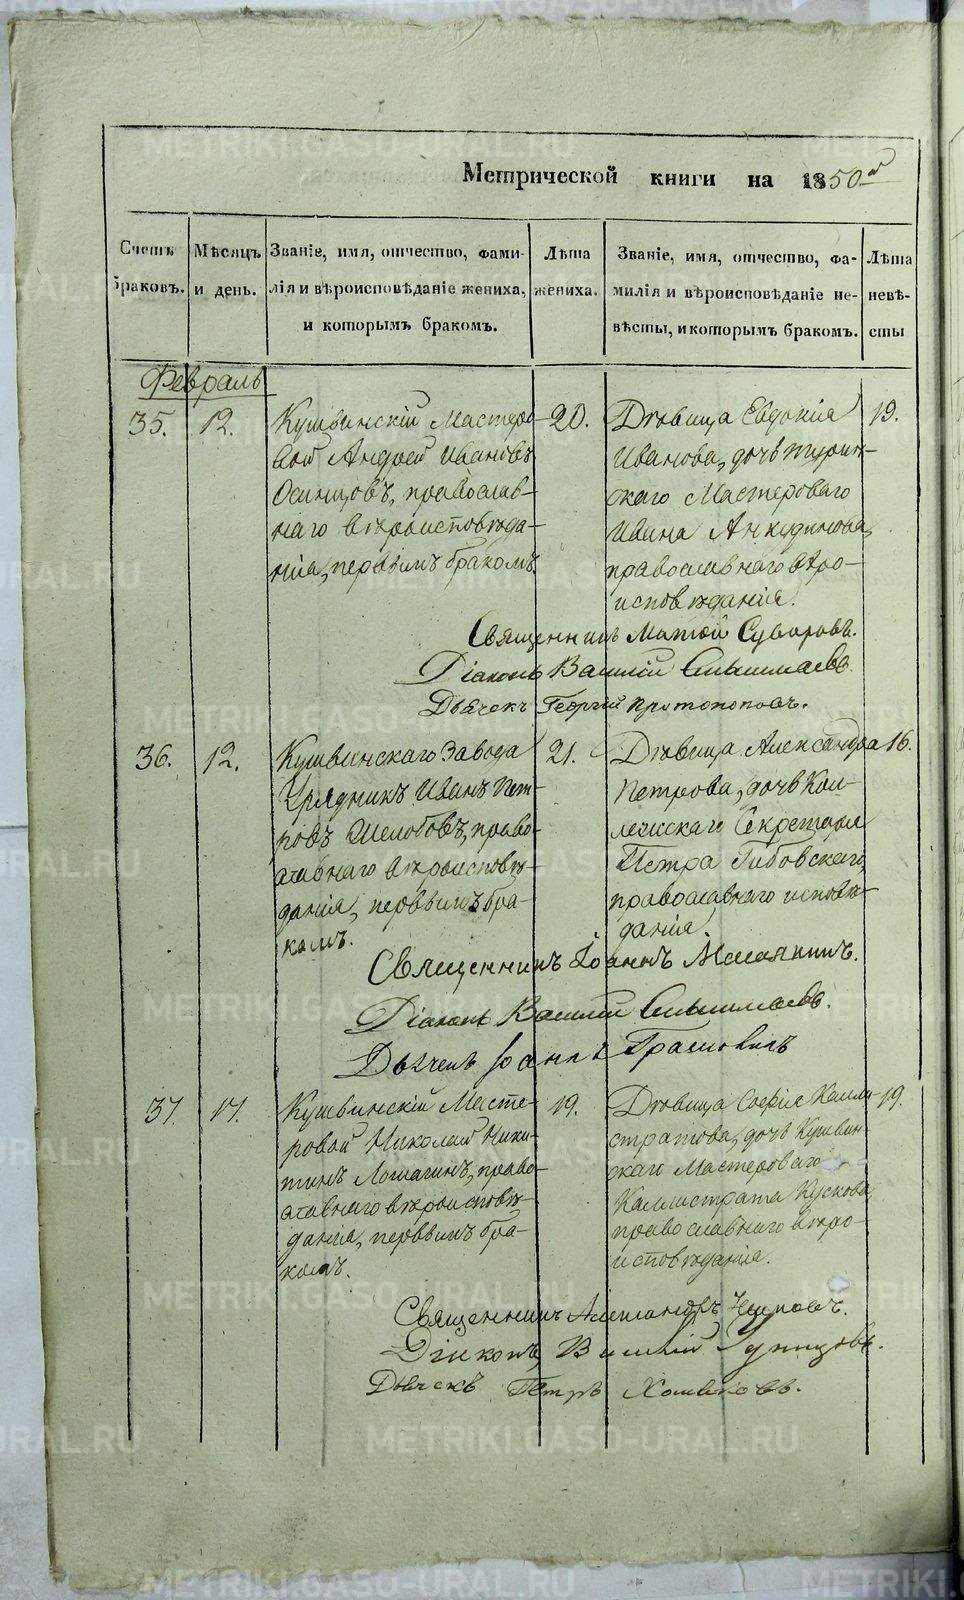 Метрической книги на 1850й
Счетъ браковъ.
Мѣсяцъ и день.
Званіе, имя, отчество, фами-
лія и вѣроисповѣданіе жениха,
и которымъ бракомъ.
Лѣта
жениха.
Званіе, имя, отчество, фа-
милія и вѣроисповѣданіе не-
вѣсты, и которымъ бракомъ.
Лѣта
невѣ-
сты
Февраль
35. 12.
Кушвинскій Мастеро-
вой Андрей Ивановъ
Осинцовъ, православ-
наго вѣроисповѣда-
нія, первымъ бракомъ.
20.
Дѣвица Евдокія
Иванова, дочь Турин-
скаго Мастероваго
Ивана Анкудинова,
православнаго вѣро-
исповѣданія.
19.
Священникъ Матѳей Суворовъ.
Діаконъ Василій
Дьячекъ Георгій Протопоповъ.
36. 12.
Кушвинскаго Завода
Урядникъ Иванъ Пет-
ровъ Шелобовъ, право-
славнаго вѣроисповѣ-
данія, первымъ бра-
комъ.
21.
Дѣвица Александра
Петрова, дочь Кол-
лежскаго Секретаря
Петра Гибовскаго,
православнаго исповѣ-
данія.
16.
Священникъ Іоаннъ
Діаконъ Василій
Дьячекъ Іоаннъ
37. 17.
Кушвинскій Масте-
ровой Николай Ники-
тинъ Лошагинъ, право-
славнаго вѣроисповѣ-
данія, первымъ бра-
комъ.
19.
Дѣвица Софія Калли-
стратова, дочь Кушвин-
скаго Мастероваго
Каллистрата Кускова,
православнаго вѣро-
исповѣданія.
19.
Священникъ Александръ
Діаконъ Василій
Дьячекъ Петръ Хомяковъ.
METRIKI.GASO-URAL.RU